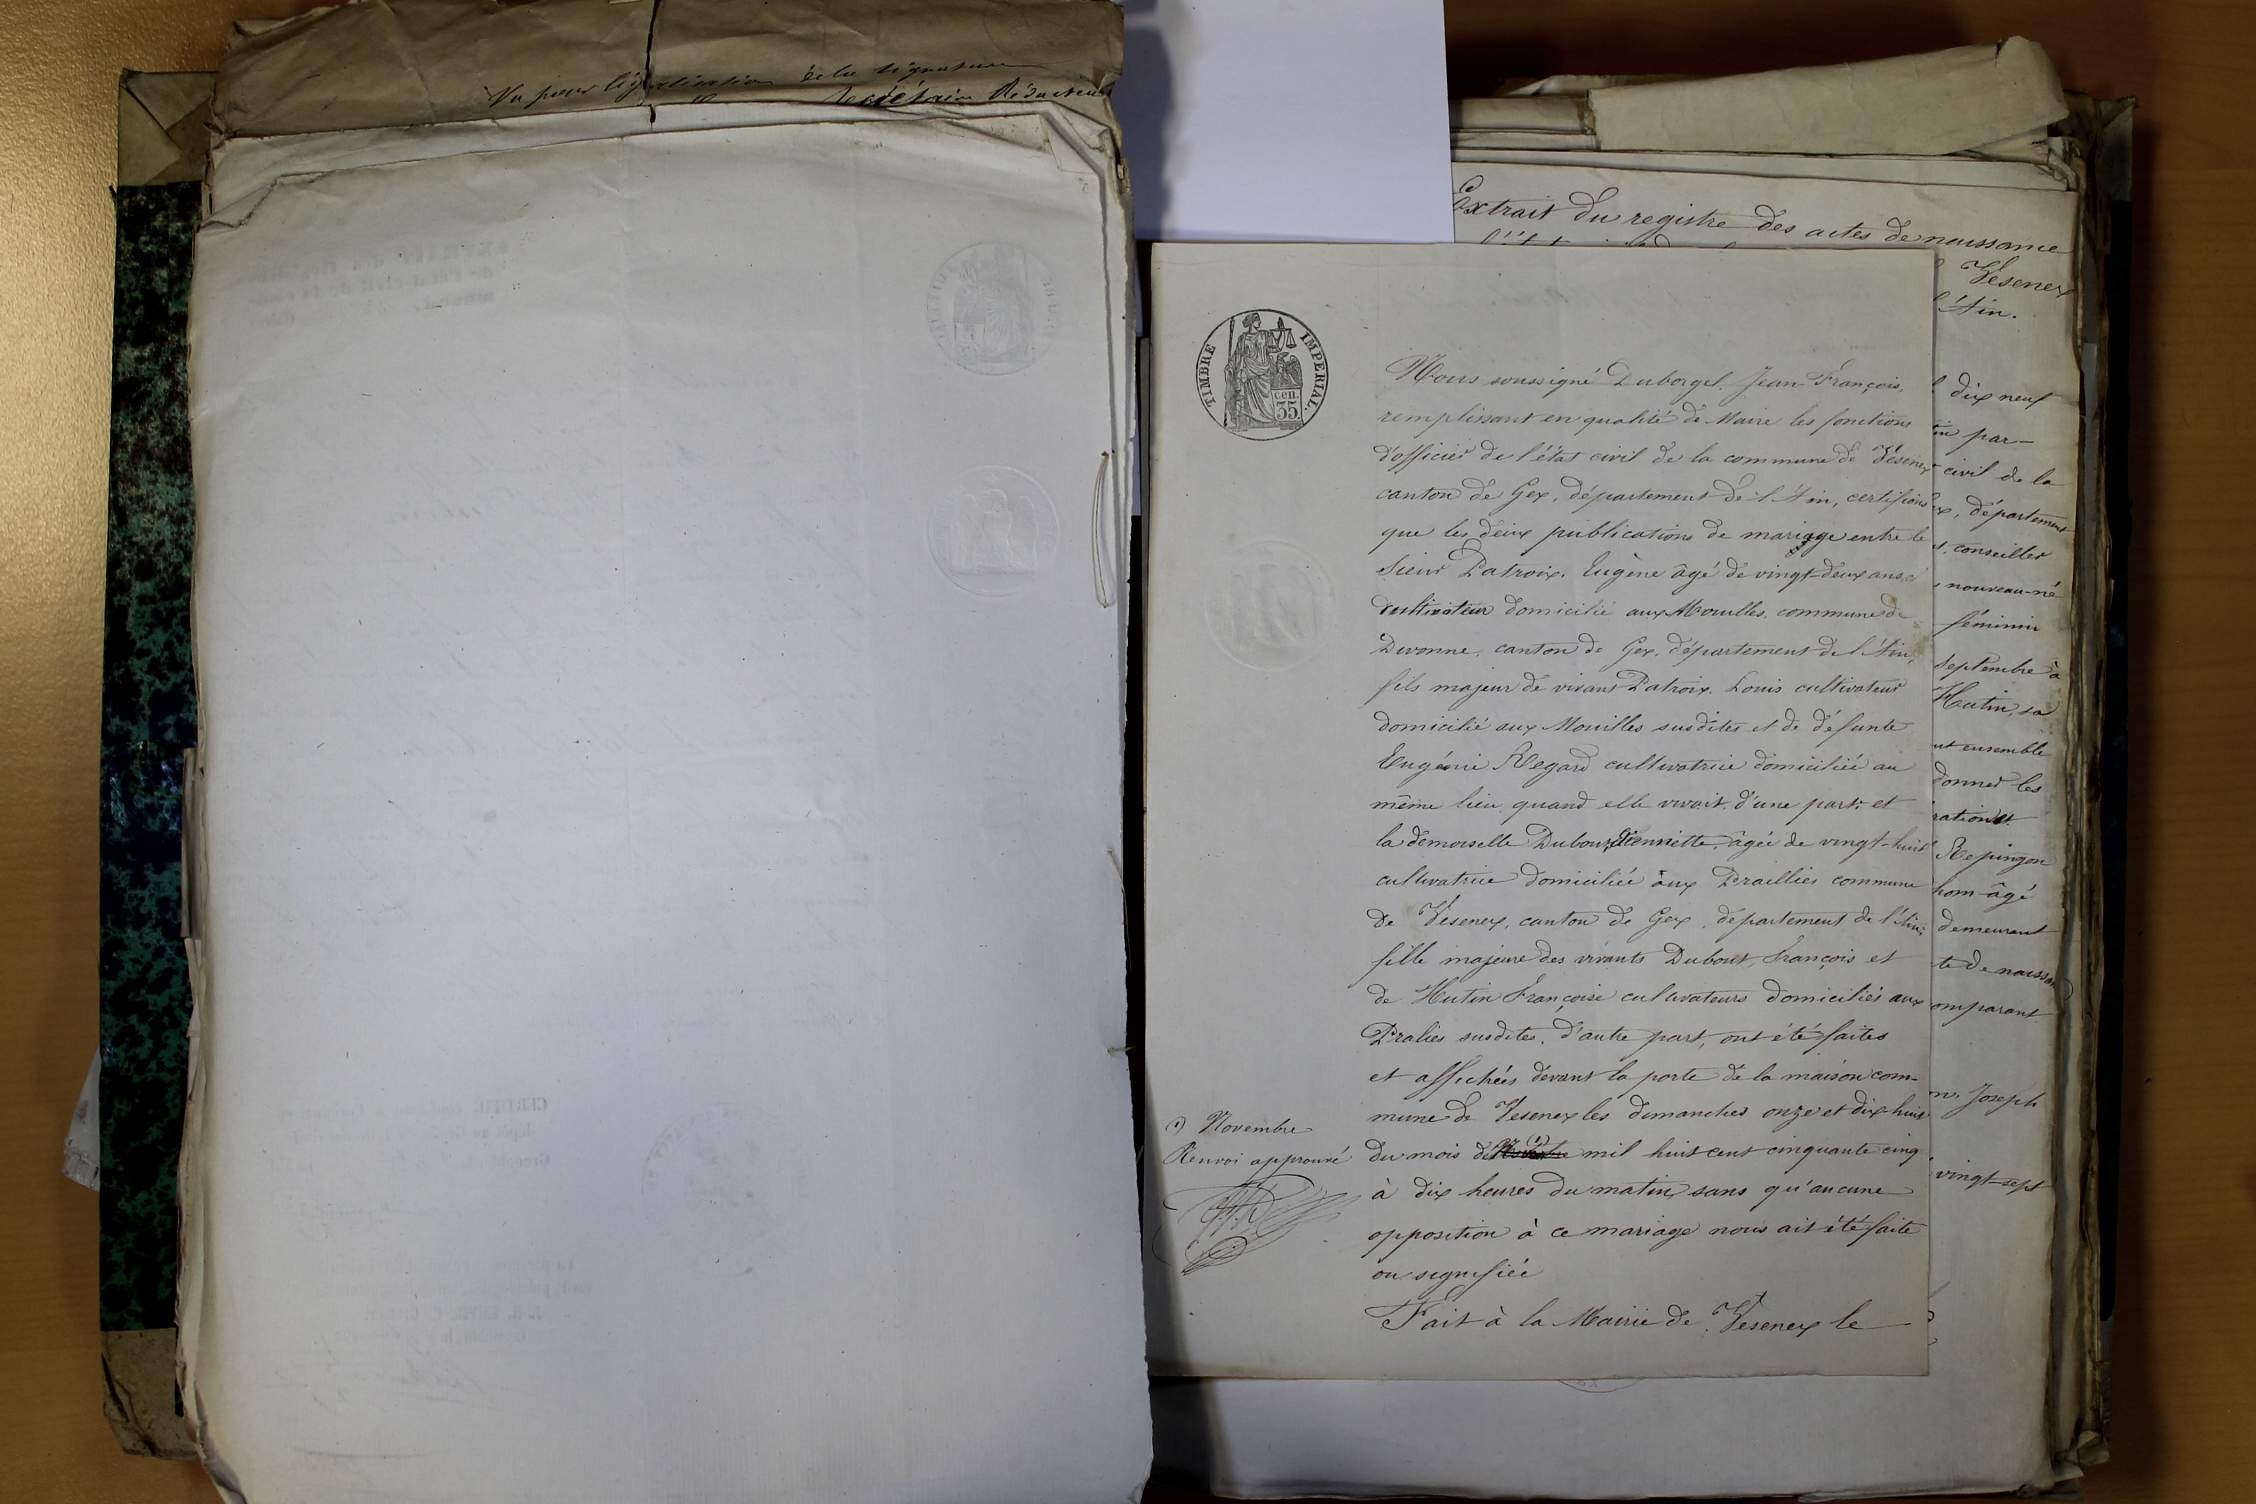 Vu pour légalisation de la signature
Secrétaire Rédacteur
Extrait du registre des actes de naissance
Vesenex
l'Ain.
dix neuf
par
civil de la
département
conseiller
nouveau-né
féminin
septembre à
Hutin, sa
ensemble
donner les
Repingon
âgé
demeurant
te de naissan
omparant
Joseph
vingt-sept
TIMBRE IMPERIAL.
cen.
35.
Nous soussigné Duborgel, Jean-François,
remplissant en qualité de Maire les fonctions
d'officier de l'état civil de la commune de Vésenex
canton de Gex, département de l'Ain, certifions
que les deux publications de mariage entre le
sieur Patroix, Eugène âgé de vingt-deux ans,
cultivateur domicilié aux Mouilles, commune de
Divonne, canton de Gex, département de l'Ain,
fils majeur de vivant Patroix, Louis cultivateur
domicilié aux Mouilles susdites et de défunte
Eugénie Regard cultivatrice domiciliée au
même lieu quand elle vivait, d'une part; et
la demoiselle Dubout, Henriette, âgée de vingt-huit
cultivatrice domiciliée aux Praillies commune
de Vésenex, canton de Gex, département de l'Ain,
fille majeure des vivants Dubout, François et
de Hutin Françoise cultivateurs domiciliés aux
Pralies susdites, d'autre part, ont été faites
et affichées devant la porte de la maison com-
mune de Vesenex les dimanches onze et dix-huit
du mois de (1) mil huit cent cinquante cinq
à dix heures du matin, sans qu'aucune
opposition à ce mariage nous ait été faite
ou signifiée
Fait à la Mairie de Vésenex le
(1) Novembre
Renvoi approuvé